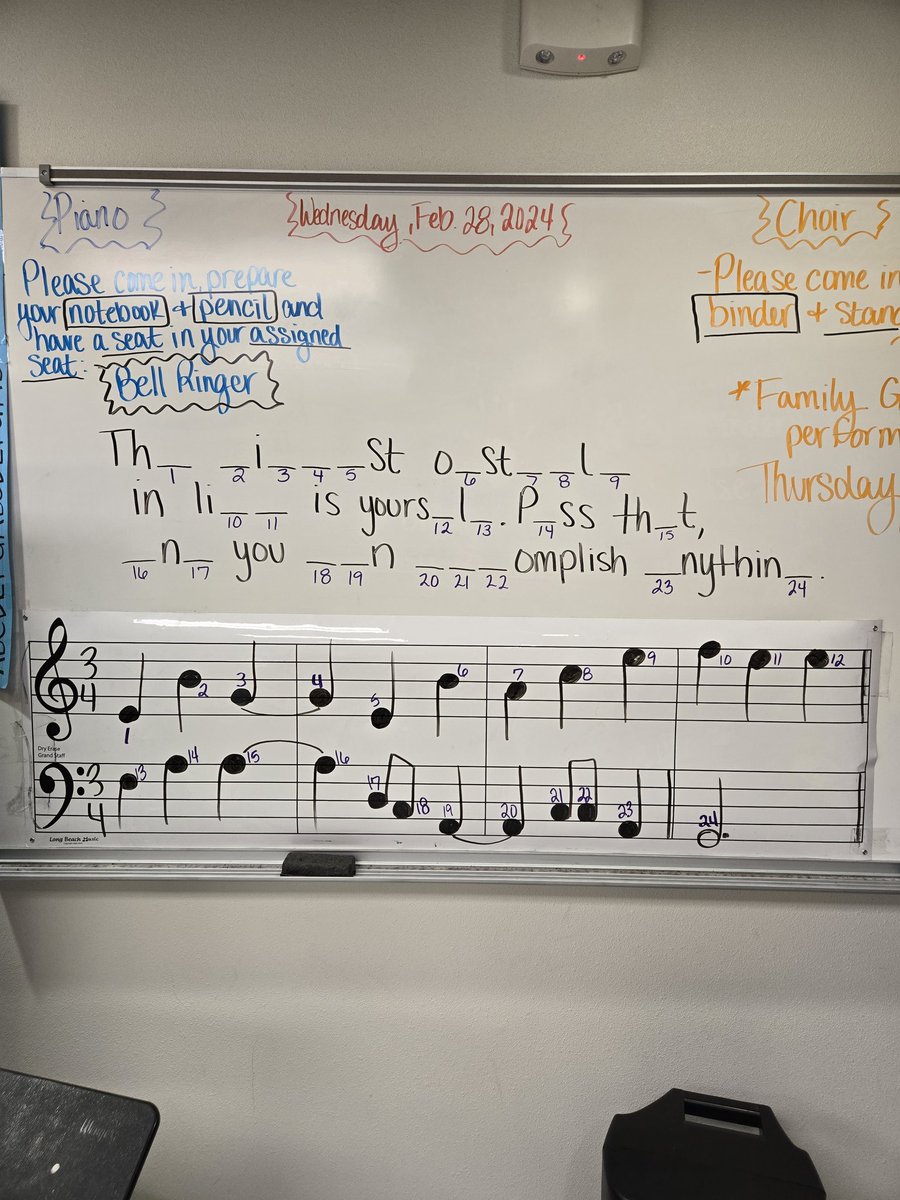 {Piano}
{Wednesday, Feb. 28, 2024}
{Choir}
Please come in, prepare
your notebook + pencil and
have a seat in your assigned
seat.
Bell Ringer
-Please come in
binder + stan
*Family G
perform
Thursday
Th_ _i___st o_st__l_
1 2 3 4 5 6 7 8 9
in li__ is yours_l_. P_ss th_t,
10 11 12 13 14 15
_n_ you __n ___omplish _nythin_.
16 17 18 19 20 21 22 23 24
3 4
1 2 3 4 5 6 7 8 9 10 11 12
Dry Erase
Grand Staff
3 4
13 14 15 16 17 18 19 20 21 22 23 24
Long Beach Music